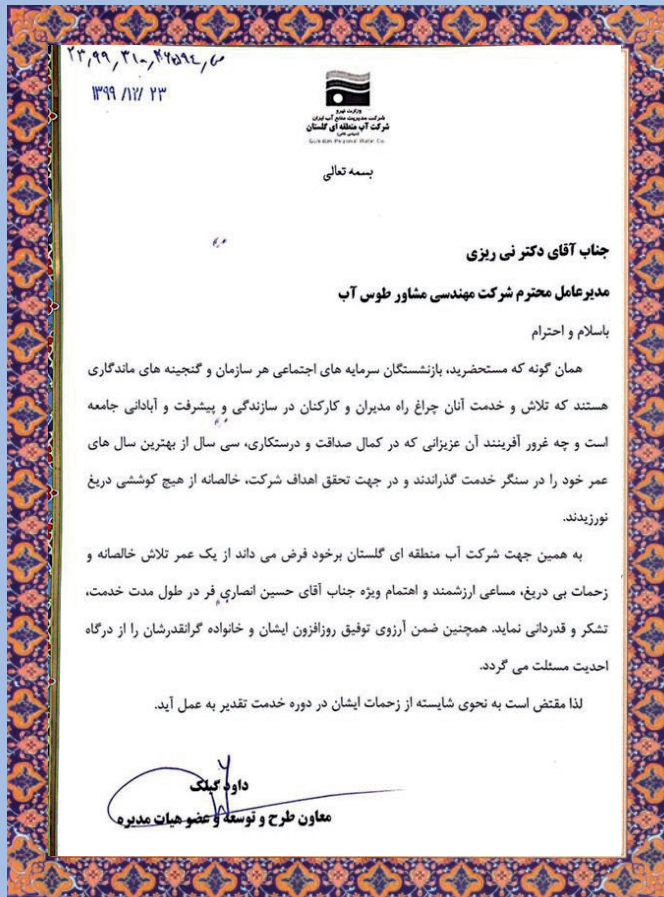 ۱۳۹۹ /۱۲/ ۲۳
وزارت نیرو
شرکت مدیریت منابع آب ایران
شرکت آب منطقه ای گلستان
(سهامی خاص)
Golestan Regional Water Co.
بسمه تعالی
جناب آقای دکتر نی ریزی
مدیرعامل محترم شرکت مهندسی مشاور طوس آب
باسلام و احترام
همان گونه که مستحضرید، بازنشستگان سرمایه های اجتماعی هر سازمان و گنجینه های ماندگاری
هستند که تلاش و خدمت آنان چراغ راه مدیران و کارکنان در سازندگی و پیشرفت و آبادانی جامعه
است و چه غرور آفرینند آن عزیزانی که در کمال صداقت و درستکاری، سی سال از بهترین سال های
عمر خود را در سنگر خدمت گذراندند و در جهت تحقق اهداف شرکت، خالصانه از هیچ کوششی دریغ
نورزیدند.
به همین جهت شرکت آب منطقه ای گلستان برخود فرض می داند از یک عمر تلاش خالصانه و
زحمات بی دریغ، مساعی ارزشمند و اهتمام ویژه جناب آقای حسین انصاری فر در طول مدت خدمت،
تشکر و قدردانی نماید. همچنین ضمن آرزوی توفیق روزافزون ایشان و خانواده گرانقدرشان را از درگاه
احدیت مسئلت می گردد.
لذا مقتض است به نحوی شایسته از زحمات ایشان در دوره خدمت تقدیر به عمل آید.
داود کیلک
معاون طرح و توسعه و عضو هیات مدیره